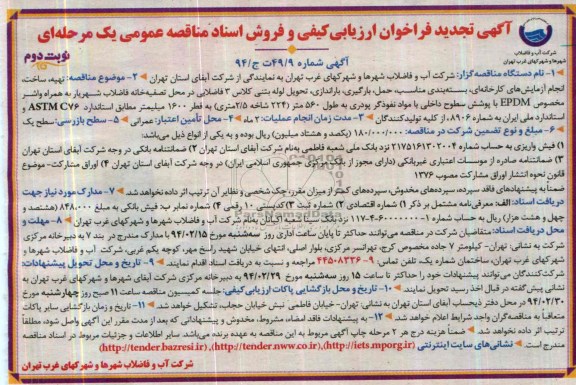 آگهی تجدید فراخوان ارزیابی کیفی و فروش اسناد مناقصه عمومی یک مرحله‌ای
شرکت آب و فاضلاب
شهرها و شهرکهای غرب تهران
آگهی شماره ۴۹/۹ت ج/۹۴
نوبت دوم
۱- نام دستگاه مناقصه گزار: شرکت آب و فاضلاب شهرها و شهرکهای غرب تهران به نمایندگی از شرکت آبفای استان تهران ۲- موضوع مناقصه: تهیه، ساخت،
انجام آزمایش‌های کارخانه‌ای، بسته‌بندی مناسب، حمل، بارگیری، باراندازی، تحویل لوله بتنی کلاس ۳ فاضلابی در محل تصفیه‌خانه فاضلاب شهریار به همراه واشر
مخصوص EPDM با پوشش سطوح داخلی با مواد نفوذگر پودری به طول ۵۶۰ متر (۲۲۴ شاخه ۲/۵متری) به قطر ۱۶۰۰ میلیمتر مطابق استاندارد ASTM C۷۶ و
استاندارد ملی ایران به شماره ۸۹۰۶، از کلیه تولیدکنندگان ۳- مدت زمان انجام عملیات: ۲ ماه ۴- محل تأمین اعتبار: عمرانی ۵- سطح بازرسی: سطح یک
۶- مبلغ و نوع تضمین شرکت در مناقصه: ۱۸۰/۰۰۰/۰۰۰ (یکصد و هشتاد میلیون) ریال بوده و به یکی از انواع ذیل می‌باشد:
۱) فیش واریزی به حساب شماره ۲۱۷۵۱۶۱۳۰۲۰۰۴ نزد بانک ملی شعبه فاطمی به‌نام شرکت آبفای استان تهران ۲) ضمانتنامه بانکی در وجه شرکت آبفای استان تهران
۳) ضمانتنامه صادره از موسسات اعتباری غیربانکی (دارای مجوز از بانک مرکزی جمهوری اسلامی ایران) در وجه شرکت آبفای استان تهران ۴) اوراق مشارکت- موضوع
قانون نحوه انتشار اوراق مشارکت مصوب ۱۳۷۶
ضمناً به پیشنهادهای فاقد سپرده، سپرده‌های مخدوش، سپرده‌های کمتر از میزان مقرر، چک شخصی و نظایر آن ترتیب اثر داده نخواهد شد. ۷- مدارک مورد نیاز جهت
دریافت اسناد: الف: معرفی‌نامه مشتمل بر ذکر ۱) شماره اقتصادی ۲) شماره ثبت ۳) کدپستی ۱۰ رقمی ۴) شماره نمابر ب: فیش بانکی به مبلغ ۸۴۸،۰۰۰ (هشتصد و
چهل و هشت هزار) ریال به حساب شماره شرکت آب و فاضلاب شهرها و شهرکهای غرب تهران ۸- مهلت و
محل دریافت اسناد: متقاضیان شرکت در مناقصه می‌توانند حداکثر تا پایان ساعت اداری روز سه‌شنبه مورخ ۹۴/۰۲/۱۵ با مدارک مندرج در بند ۷ به دبیرخانه مرکزی
شرکت به نشانی: تهران- کیلومتر ۷ جاده مخصوص کرج، تهرانسر مرکزی، بلوار اصلی، انتهای خیابان شهید راسخ مهر، کوچه یکم غربی، شرکت آب و فاضلاب شهرها و
شهرکهای غرب تهران، ساختمان شماره یک، تلفن تماس: ۹-۴۴۵۰۸۳۳۶ مراجعه و نسبت به دریافت اسناد اقدام نمایند. ۹- تاریخ و محل تحویل پیشنهادات:
شرکت‌کنندگان می‌توانند پیشنهادات خود را حداکثر تا ساعت ۱۵ روز سه‌شنبه مورخ ۹۴/۰۲/۲۹ به دبیرخانه مرکزی شرکت آبفای شهرها و شهرکهای غرب تهران به
نشانی پیش گفته در قبال اخذ رسید تحویل نمایند. ۱۰- تاریخ و محل بازگشایی پاکات ارزیابی کیفی: جلسه کمیسیون مناقصه ساعت ۱۱ صبح روز چهارشنبه مورخ
۹۴/۰۲/۳۰ در محل دفتر ذیحساب آبفای استان تهران به نشانی: تهران- خیابان فاطمی نبش خیابان حجاب، تشکیل خواهد شد. ۱۱- تاریخ و زمان بازگشایی سایر پاکات
متعاقباً به مناقصه‌گران واجد شرایط اعلام خواهد شد. ۱۲- به پیشنهادات فاقد امضاء، مشروط، مخدوش و پیشنهاداتی که بعد از مدت مقرر این آگهی واصل شود، مطلقاً
ترتیب اثر داده نخواهد شد. ضمناً هزینه درج هر ۲ مرحله چاپ آگهی مربوط به این مناقصه به عهده برنده می‌باشد. سایر اطلاعات و جزئیات مربوط در اسناد مناقصه
مندرج است. نشانی‌های سایت اینترنتی (http://iets.mporg.ir)، (http://tender.nww.co.ir)، (http://tender.bazresi.ir)
شرکت آب و فاضلاب شهرها و شهرکهای غرب تهران